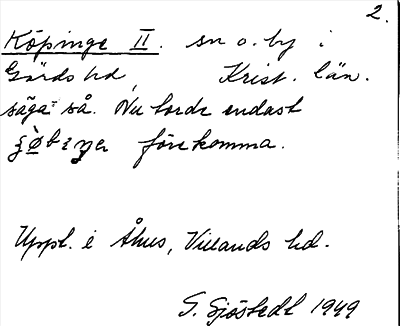 2.
Köpinge II. sn o. by i
Gärds hd, Krist. län.
säga: så. Nu torde endast
förekomma.
Uppl. i Åhus, Villands hd.
G. Sjöstedt 1949